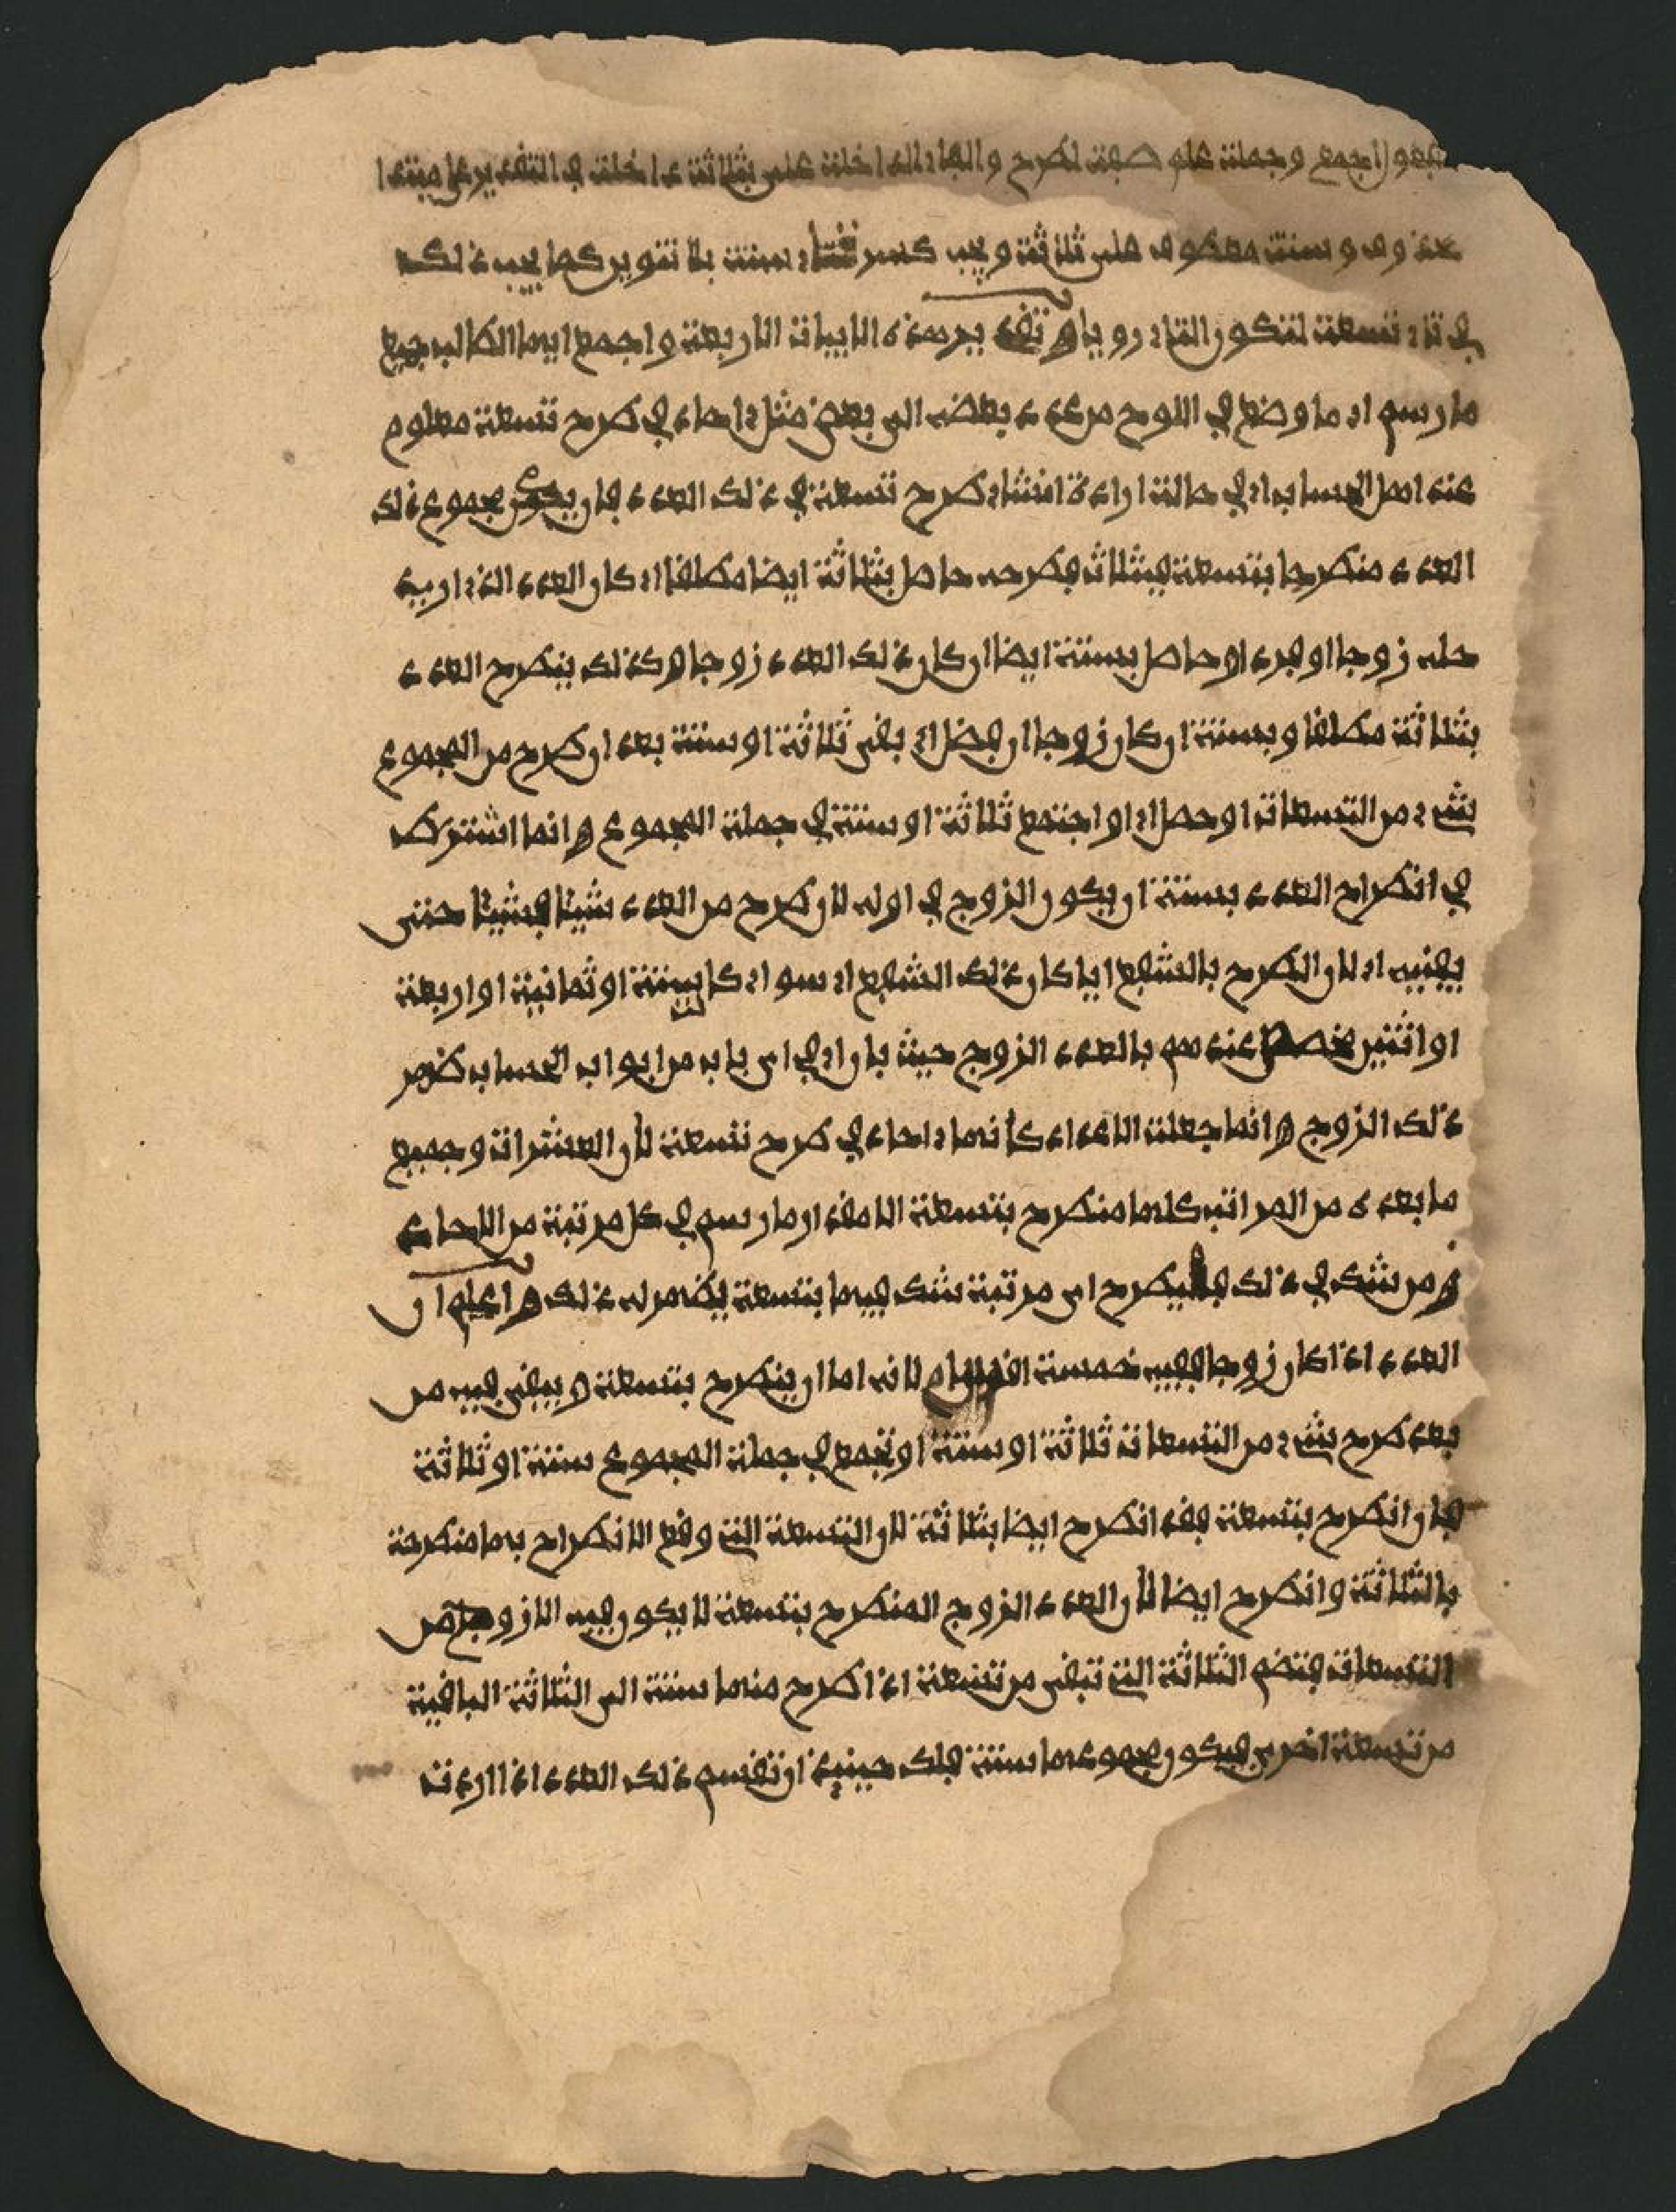 فقوله اجمع وجملة على صفة لطرح والهاء الداخلة على بثلاثة داخلة في التقدير على مبتدا
محذوف وستة معطوف على ثلاثة ويجب كسر تاء ستة بلا تنوير كما يجب ذلك
في تاء تسعة لتكون التاء رويا ه تقدير هذه الابيات الاربعة واجمع ايها الطالب جميع
ما رسم اي ما وضع في اللوح من عدد بعضه الى بعض مثل احاد في طرح تسعة معلوم
عند اهل الحساب اي في حالة ارادة انشاء طرح تسعة في ذلك العدد فان يكن مجموع ذلك
العدد منطرحا بتسعة فبثلاث فطرحه حاصل بثلاثة ايضا مطلقا اي كان العدد الذي اريد
حله زوجا او فردا او حاصل بستة ايضا ان كان ذلك العدد زوجا ه كذلك ينطرح العدد
بثلاثة مطلقا وبستة ان كان زوجا ان فضل اي بقي ثلاثة او ستة بعد ان طرح من المجموع
شيء من التسعات او حصل اي او اجتمع ثلاثة او ستة في جملة المجموع ه انما اشترط
في انطراح العدد بستة ان يكون الزوج في اوله لان طرح من العدد شيئا فشيئا حتى
يفنيه اي لان الطرح بالشفع ايا كان ذلك الشفع اي سواء كان بستة او ثمانية او اربعة
او اثنين عندهم بالعدد الزوج حيث بان اي في اي باب من ابواب الحساب ظهر
ذلك الزوج ه انما جعلت الاعداد كانها احاد في طرح تسعة لأن العشرات وجميع
ما بعده من المراتب كلها منطرح بتسعة الا مقدار ما رسم في كل مرتبة من الاحاد
ه من شك في ذلك فليطرح اي مرتبة شك فيها بتسعة يظهر له ذلك ه اعلم ان
العدد اذا كان زوجا ففيه خمسة اقسام لانه اما ان ينطرح بتسعة ه يبقى فيه من
بعد طرح شيء من التسعات ثلاثة او ستة او تجمع في جملة المجموع ستة او ثلاثة
فان انطرح بتسعة فقد انطرح ايضا بثلاثة لان التسعة التي وقع الانطراح بها منطرحة
بالثلاثة وانطرح ايضا لأن العدد الزوج المنطرح بتسعة لا يكون فيه الا زوج من
التسعات فتضم الثلاثة التي تبقى من تسعة اذا طرح منها ستة الى الثلاثة الباقية
من تسعة اخرى فيكون مجموعها ستة فلك حينئذ ان تقسم ذلك العدد اذا اردت